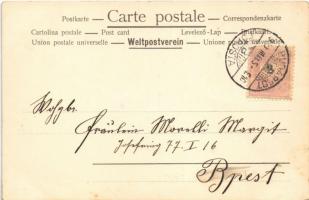 Postkarte — Carte postale — Correspondenzkarte
Cartolina postale — Post card Levelező-Lap — Briefkaart
Union postale universelle — Weltpostverein — Unione postale universale
Fräulein Morelli Margit
77. I 16
Bpest